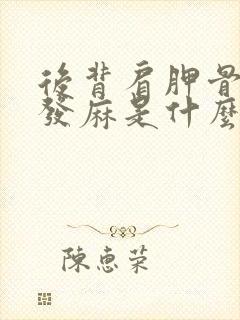 後背肩胛骨
發麻是什麼
陳惠荣